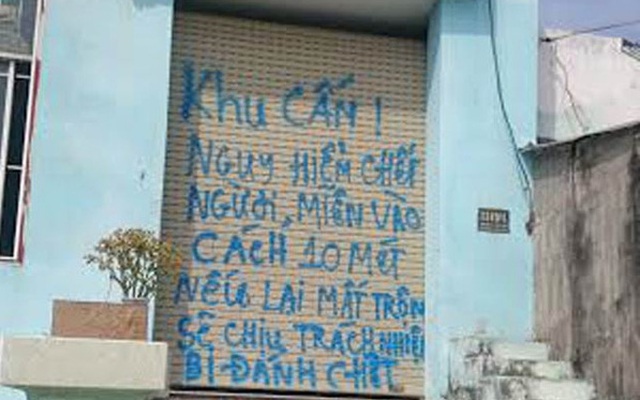 KHU CẤN !
NGUY HIỂM CHẾT
NGƯỜI, MIỄN VÀO
CÁCH 10 MÉT
NẾU LẠI MẤT TRỘN
SẼ CHỊU TRÁCH NHIỆM
BỊ ĐÁNH CHẾT